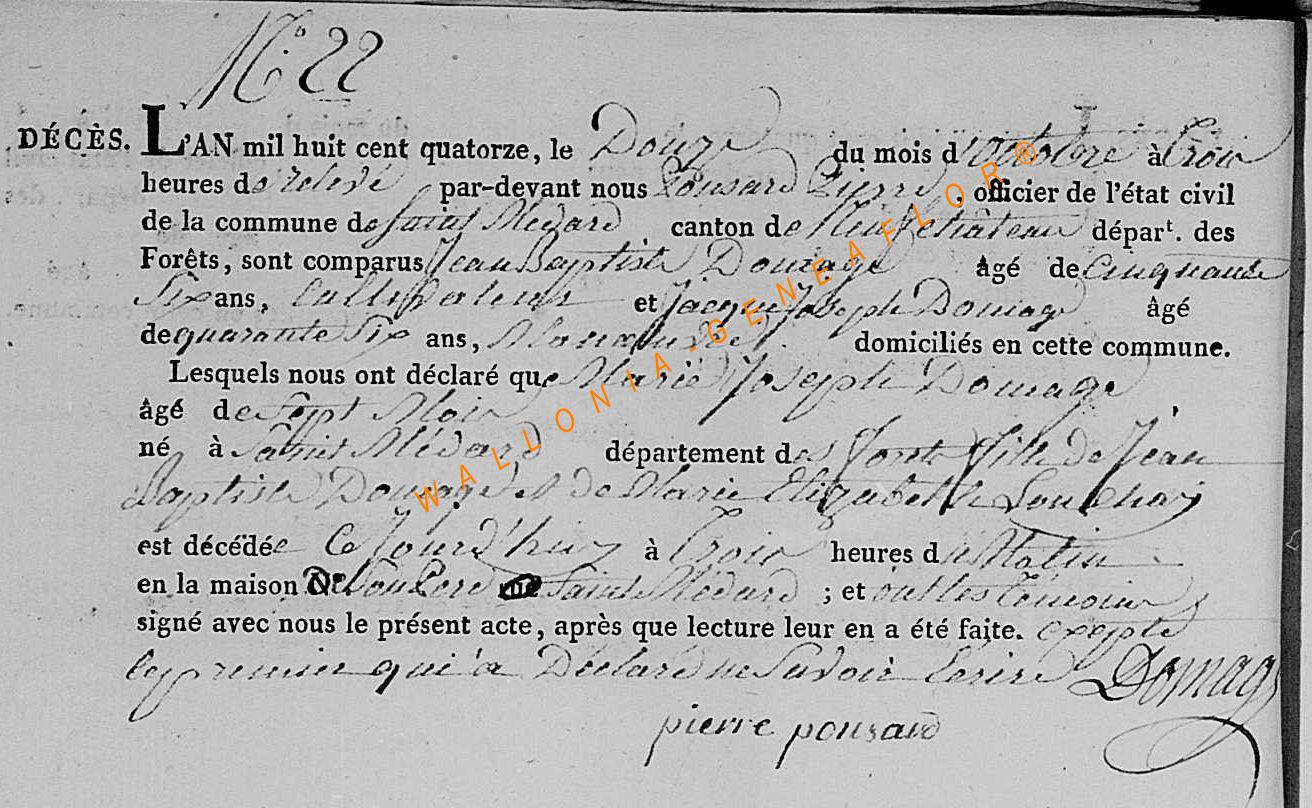 N° 22
DÉCÈS. L'AN mil huit cent quatorze, le Douze du mois d'octobre à trois
heures de relevé par-devant nous Pousard Pierre, officier de l'état civil
de la commune de Saint Médard canton de Neufchâteauépart. des
Forêts, sont comparus Jean Baptiste Domage âgé de Cinquante
Six ans, Cultivateur et Jacque Joseph Domage âgé
de quarante Six ans, domiciliés en cette commune.
Lesquels nous ont déclaré que Marie Joseph Domage
âgé de Sept Mois
né à Saint Médard département des fille de Jean
Baptiste Domage et de Marie Elizabeth
est décédée Ce Jourd'huy à trois heures du Matin
en la maison De Son Pere Saint Médard ; et ont les Témoins
signé avec nous le présent acte, après que lecture leur en a été faite. excepte
le premier qui a Déclaré ne Savoir Ecrire Domage
pierre pousard
WALLONIA-GENEAFLOR®